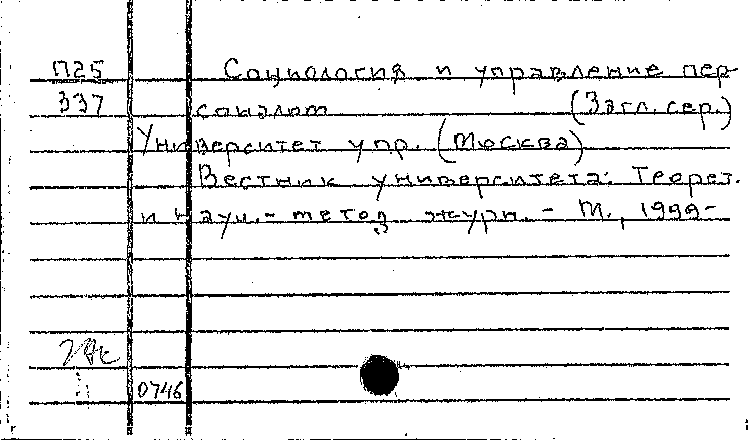 П25 Социология и управление пер-
337 соналом (Загл. сер.)
Университет упр. (Москва)
Вестник университета: Теорет.
и науч.- метод. журн. - М., 1999-
0746